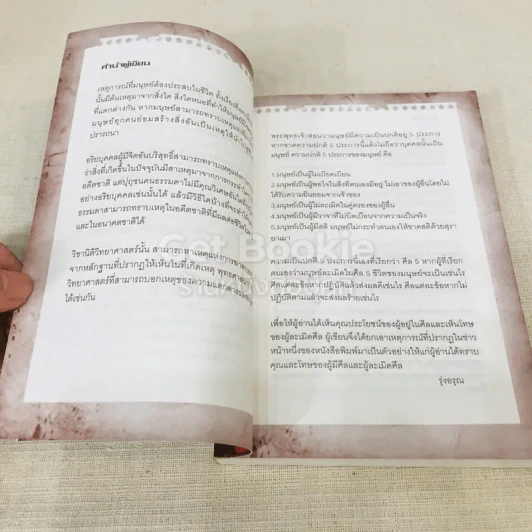 คำนำผู้เขียน
เหตุการณ์ที่มนุษย์ต้องประสบในชีวิต ทั้งเรื่อง
นั้นมีต้นเหตุมาจากสิ่งใด สิ่งใดหนอที่ทำให้มนุษย์
ที่แตกต่างกัน หากมนุษย์สามารถทราบเหตุ
มนุษย์ทุกคนย่อมสร้างสิ่งอันเป็นเหตุให้
ปรารถนา
อริยบุคคลผู้มีจิตอันบริสุทธิ์สามารถทราบเหตุ
ว่าสิ่งที่เกิดขึ้นในปัจจุบันมีสาเหตุมาจากการกระทำ
อดีตชาติ แต่ปุถุชนคนธรรมดาไม่มีคุณวิเศษอัน
อย่างอริยบุคคลเช่นนั้นได้ แล้วมีวิธีใดบ้างที่จะทำให้
ธรรมดาสามารถทราบเหตุในอดีตชาติที่มีผล
และในอนาคตชาติได้
วิชานิติวิทยาศาสตร์นั้น สามารถหาเหตุแห่งการฆาตกรรม
จากหลักฐานที่ปรากฏให้เห็นในที่เกิดเหตุ พุทธศาสตร์
วิทยาศาสตร์ที่สามารถบอกเหตุของความแตกต่าง
ได้เช่นกัน
พระพุทธเจ้าสอนว่ามนุษย์มีความเป็นปกติอยู่ 5 ประการ
หากขาดความปกติ 5 ประการนี้แล้วไม่ถือว่าบุคคลนั้นเป็น
มนุษย์ ความปกติ 5 ประการของมนุษย์ คือ
1.มนุษย์เป็นผู้ไม่เบียดเบียน
2.มนุษย์เป็นผู้พอใจในสิ่งที่ตนเองมีอยู่ ไม่เอาของผู้อื่นโดยไม่
ได้รับความยินยอมจากเจ้าของ
3.มนุษย์เป็นผู้ไม่ละเมิดคู่ครองของผู้อื่น
4.มนุษย์เป็นผู้มีวาจาที่ไม่บิดเบือนจากความเป็นจริง
5.มนุษย์เป็นผู้มีสติ มนุษย์ไม่กระทำตนเองให้ขาดสติด้วยสุรา
ยาเมา
ความเป็นปกติ 5 ประการนี้เองที่เรียกว่า ศีล 5 หากผู้ที่เรียก
ตนเองว่ามนุษย์ละเมิดในศีล 5 ชีวิตของมนุษย์จะเป็นเช่นไร
ศีลแต่ละข้อหากปฏิบัติแล้วส่งผลดีเช่นไร ศีลแต่ละข้อหากไม่
ปฏิบัติตามแล้วจะส่งผลร้ายเช่นไร
เพื่อให้ผู้อ่านได้เห็นคุณประโยชน์ของผู้อยู่ในศีลและเห็นโทษ
ของผู้ละเมิดศีล ผู้เขียนจึงได้ยกเอาเหตุการณ์ที่ปรากฏในข่าว
หน้าหนึ่งของหนังสือพิมพ์มาเป็นตัวอย่างให้แก่ผู้อ่านได้ทราบ
คุณและโทษของผู้มีศีลและผู้ละเมิดศีล
รุ่งอรุณ
Get Bookie